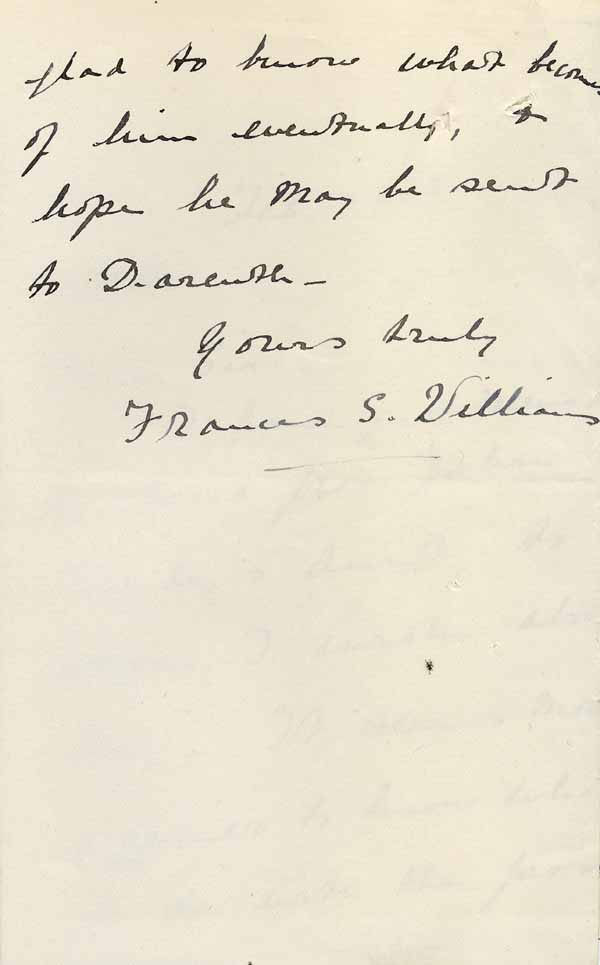 glad to know what becomes
of him eventually, &
hope he may be sent
to Darenth –
Yours truly
Frances S. Williams